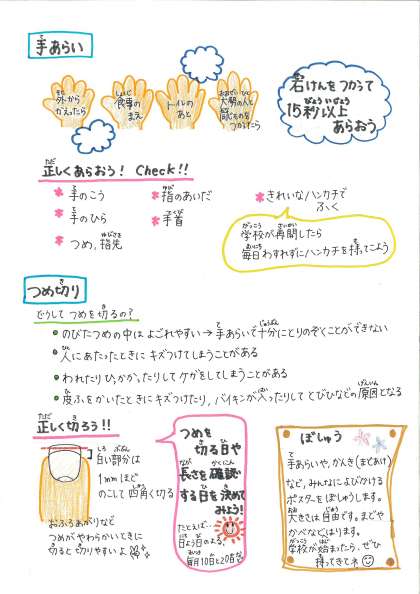 手あらい
外から
かえったら
食事の
まえ
トイレの
あと
大勢の人と
同じものを
つかったら
石けんをつかって
15秒以上
あらおう
正しくあらおう! Check!!
手のこう
手のひら
つめ、指先
指のあいだ
手首
きれいなハンカチで
ふく
学校が再開したら
毎日わすれずにハンカチを持ってこよう
つめ切り
どうして つめを切るの?
のびたつめの中は よごれやすい→手あらいで十分にとりのぞくことができない
人にあたったときに キズつけてしまうことがある
われたりひっかかったりして ケガをしてしまうことがある
皮ふをかいたときに キズつけたり、バイキンが入ったりして とびひなどの原因となる
正しく切ろう!!
白い部分は
1mmほど
のこして 四角く切る
おふろあがりなど
つめがやわらかいときに
切ると切りやすいよ
つめを
切る日や
長さを確認
する日を決めて
みよう!
たとえば…
日よう日のよる、
毎月10日と20日など
ぼしゅう
手あらいや、かんき(まどあけ)
など、みんなによびかける
ポスターをぼしゅうします。
大きさは自由です。まどや
かべなどにはります。
学校が始まったら、ぜひ
持ってきてネ